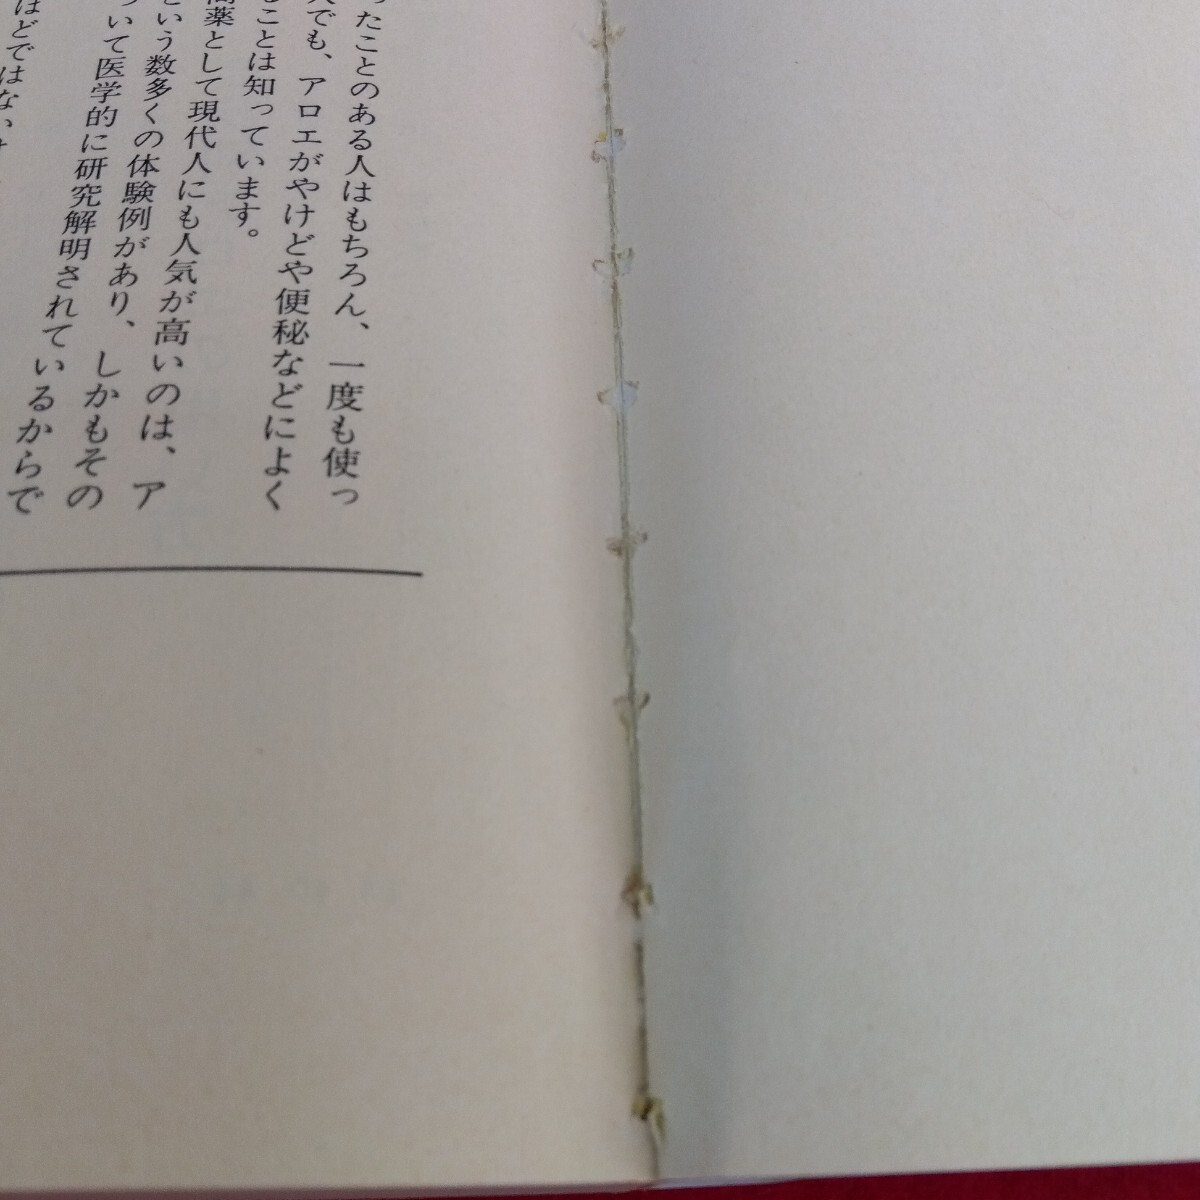 ったことのある人はもちろん、一度も使っ
人でも、アロエがやけどや便秘などによく
ることは知っています。
間薬として現代人にも人気が高いのは、ア
という数多くの体験例があり、しかもその
ついて医学的に研究解明されているからで
はどではない